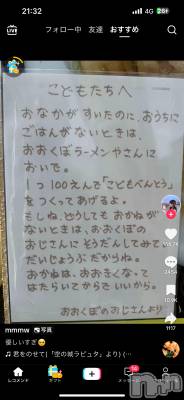 21:32
4G
LIVE
フォロー中 友達 おすすめ
こどもたちへ
おなかがすいたのに、おうちに
ごはんがないときは、
おおくぼラーメンやさんに
おいで。
1つ100えんで「こどもべんとう」
をつくってあげるよ。
もしね、どうしてもおかねが
ないときは、おおくぼの
おじさんにそうだんしてみて
だいじょうぶだからね。
おかねは、おおきくなって
はたらいてからでいいから。
おおくぼのおじさんより
2454
10.9K
1117
mmmw 写真
優しいすぎ
君をのせて(「空の城ラピュタ」より) (
レコメンド
ギフト
メッセージ
プロフィール